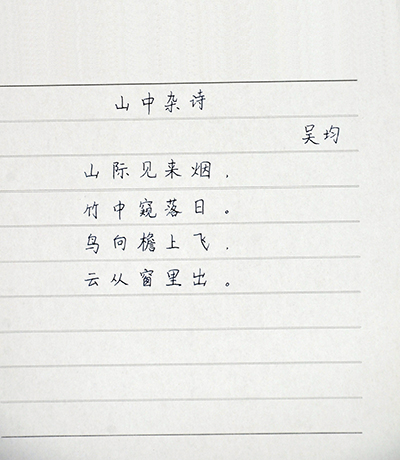 山中杂诗
吴均
山际见来烟，
竹中窥落日。
鸟向檐上飞，
云从窗里出。